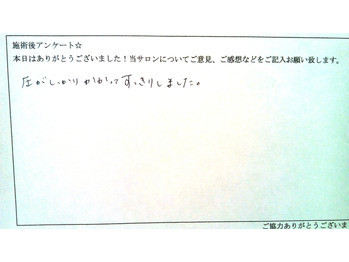 施術後アンケート☆
本日はありがとうございました！当サロンについてご意見、ご感想などをご記入お願い致します。
圧がしっかりかかってすっきりしました。
ご協力ありがとうございま